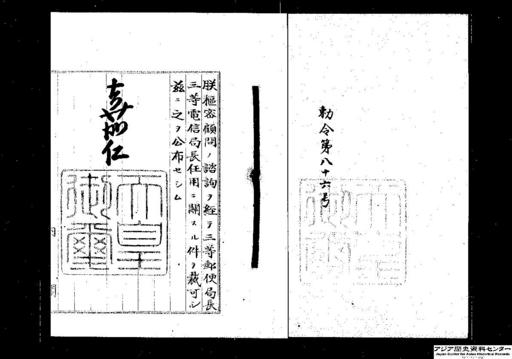 勅令第八十六号
朕樞密顧問ノ諮詢ヲ經テ三等郵便局長
三等電信局長任用ニ關スル件ヲ裁可シ
茲ニ之ヲ公布セシム
嘉仁
天皇
御璽
内閣
アジア歴史資料センター
Japan Center for Asian Historical Records